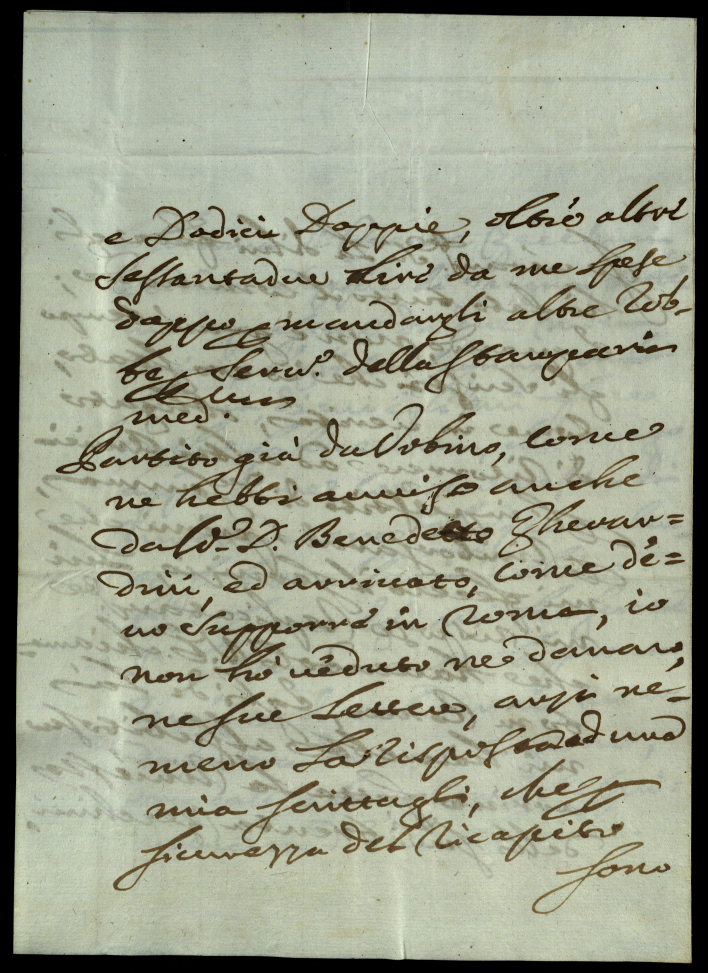 e Dodici Doppie, oltre altre
sessantadue Lire da me spese
doppo p mandargli altre rob-
be p serv.o della Stamparia
med.ma
Partito già da Urbino, come
ne hebbi avviso anche
dal S.r D. Benedetto Gherar=
dini, ed arrivato, come de=
vo supporre in Roma, io
non hò veduto ne danaro,
ne sue Lettere, anzi ne=
meno la risposta ad una
mia scrittagli, che p
sicurezza del ricapito
sono